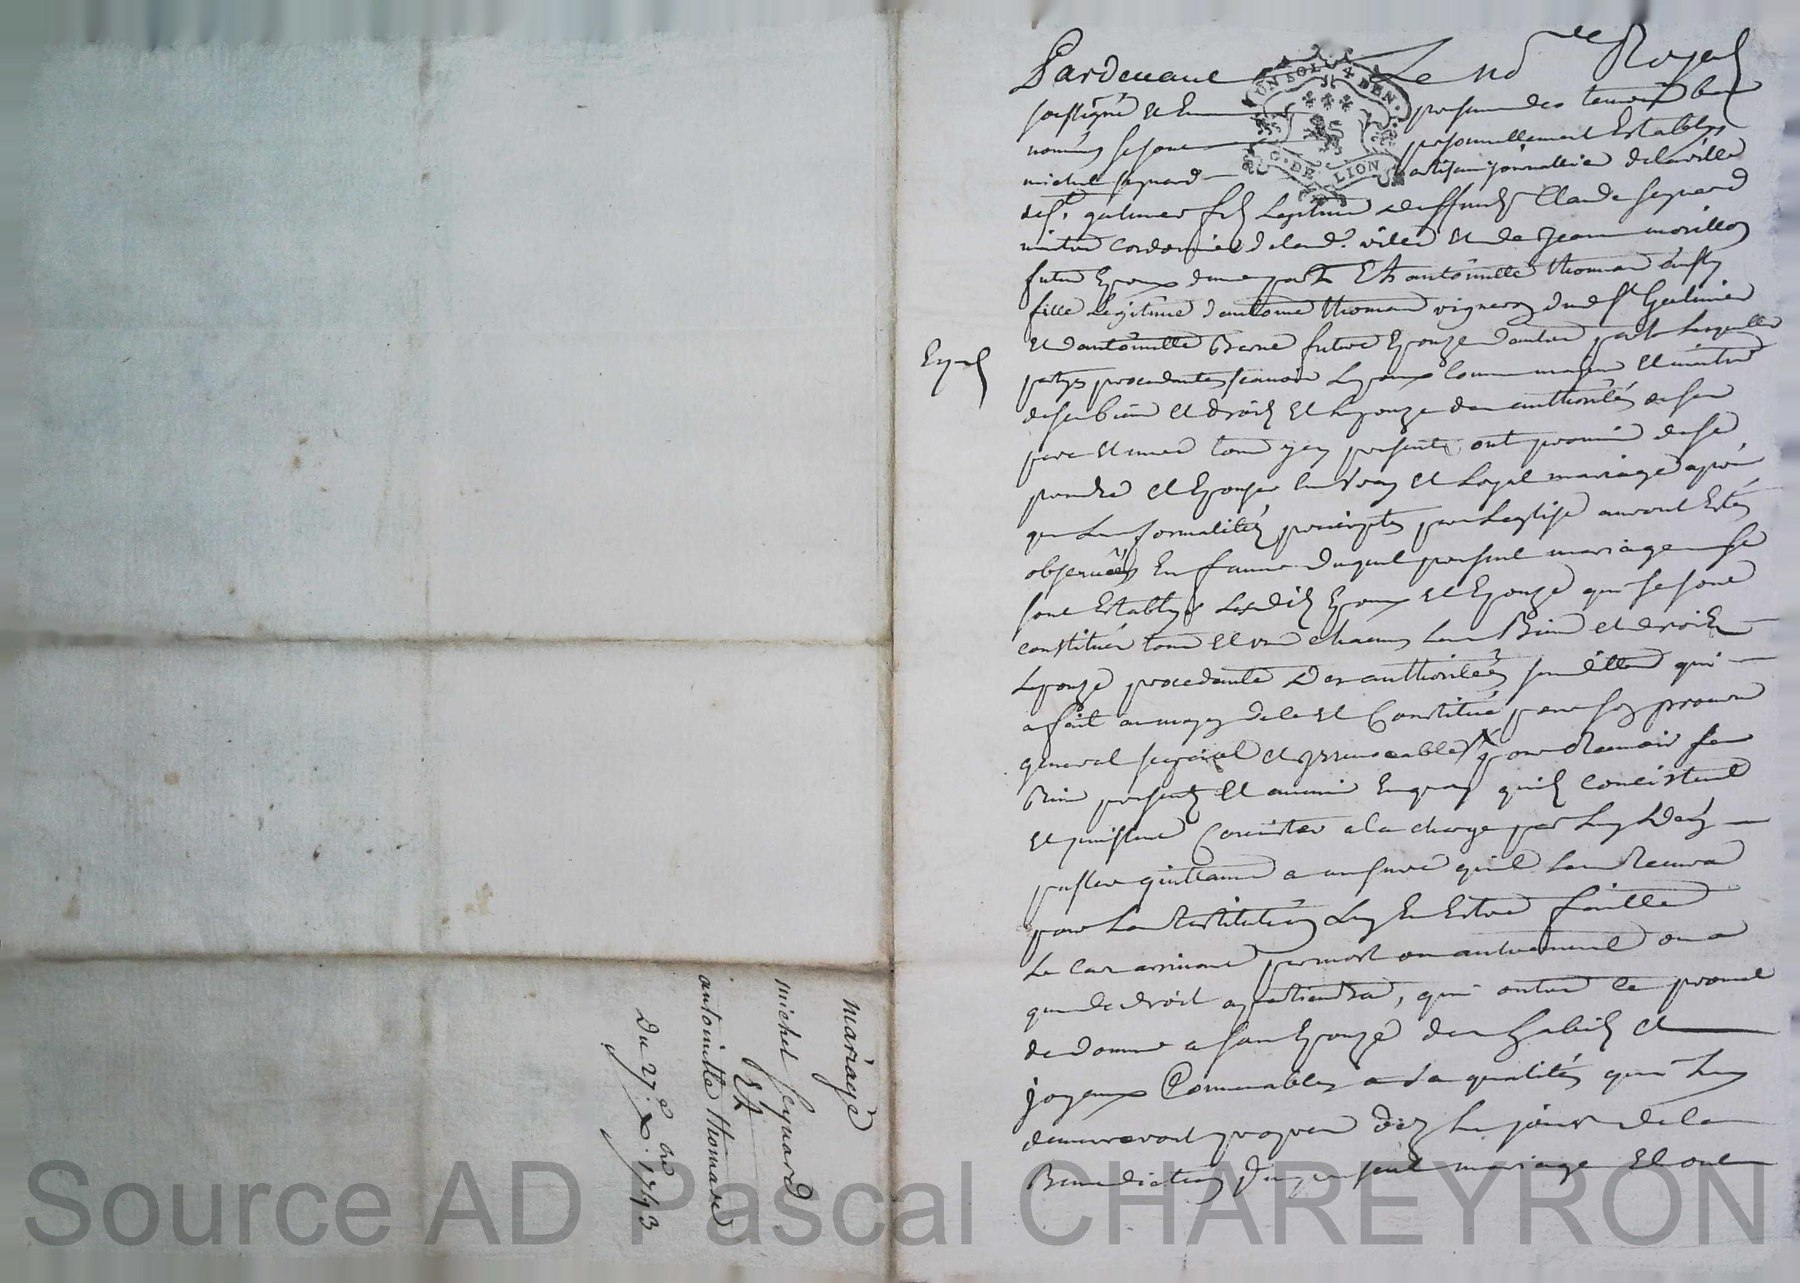 Pardevant Le No.re Royal
soussigné et en presence des temoins bas
nommés se sont personnellement Establys
michel seyvard artisan journallier de la ville
de st. galmier fils Legitime de deffunt Claude seyvard
maitre cordonnier de lad. ville et de Jeanne morillon
futur Epoux d'une part Et antoinette thomas
fille Legitime d'antoine thomas vigneron dud st Galmier
Et d'antoinette future Epouze d'autre part Lesquelles
Exped
partyes procedantes scavoir L'epoux Comme majeur et maitre
de ses biens et droits et L'epouze des authorités de ses
pere et mere tous presents, ont promis de se
prendre et Epouser En vray et Loyal mariage après
que Les formalités par L'eglise auront Estés
observées En faveur duquel present mariage se
sont Establys Lesdits Epoux et Epouze qui se sont
constitués tous et un chacuns Leurs Biens et droits
L'epouze procedante des authorités qui
a fait au moyen de ce et Constitué pour son procureur
general special et irrevocable pour Recevoir ses
Biens presents et avenir En quoy qu'ils consistent
Et puissent Consister a la charge par Luy d'en
passer quittance a mesure qu'il Les Recevra
pour La Restitution Luy En Estre faitte
Le cas arrivant par mort ou autrement ou a
que de droit apartiendra, qui outre ce promet
de donner a son Epouze des habits et
joyaux Convenables a sa qualité qui Luy
demeureront propres dez Le jour de la
Benediction du present mariage Et ont
mariage
michel seyvard
Et
antoinette thomas
Du 27.e X.bre 1743
UN SOL 4 DEN.
G. DE LION
Source AD Pascal CHAREYRON